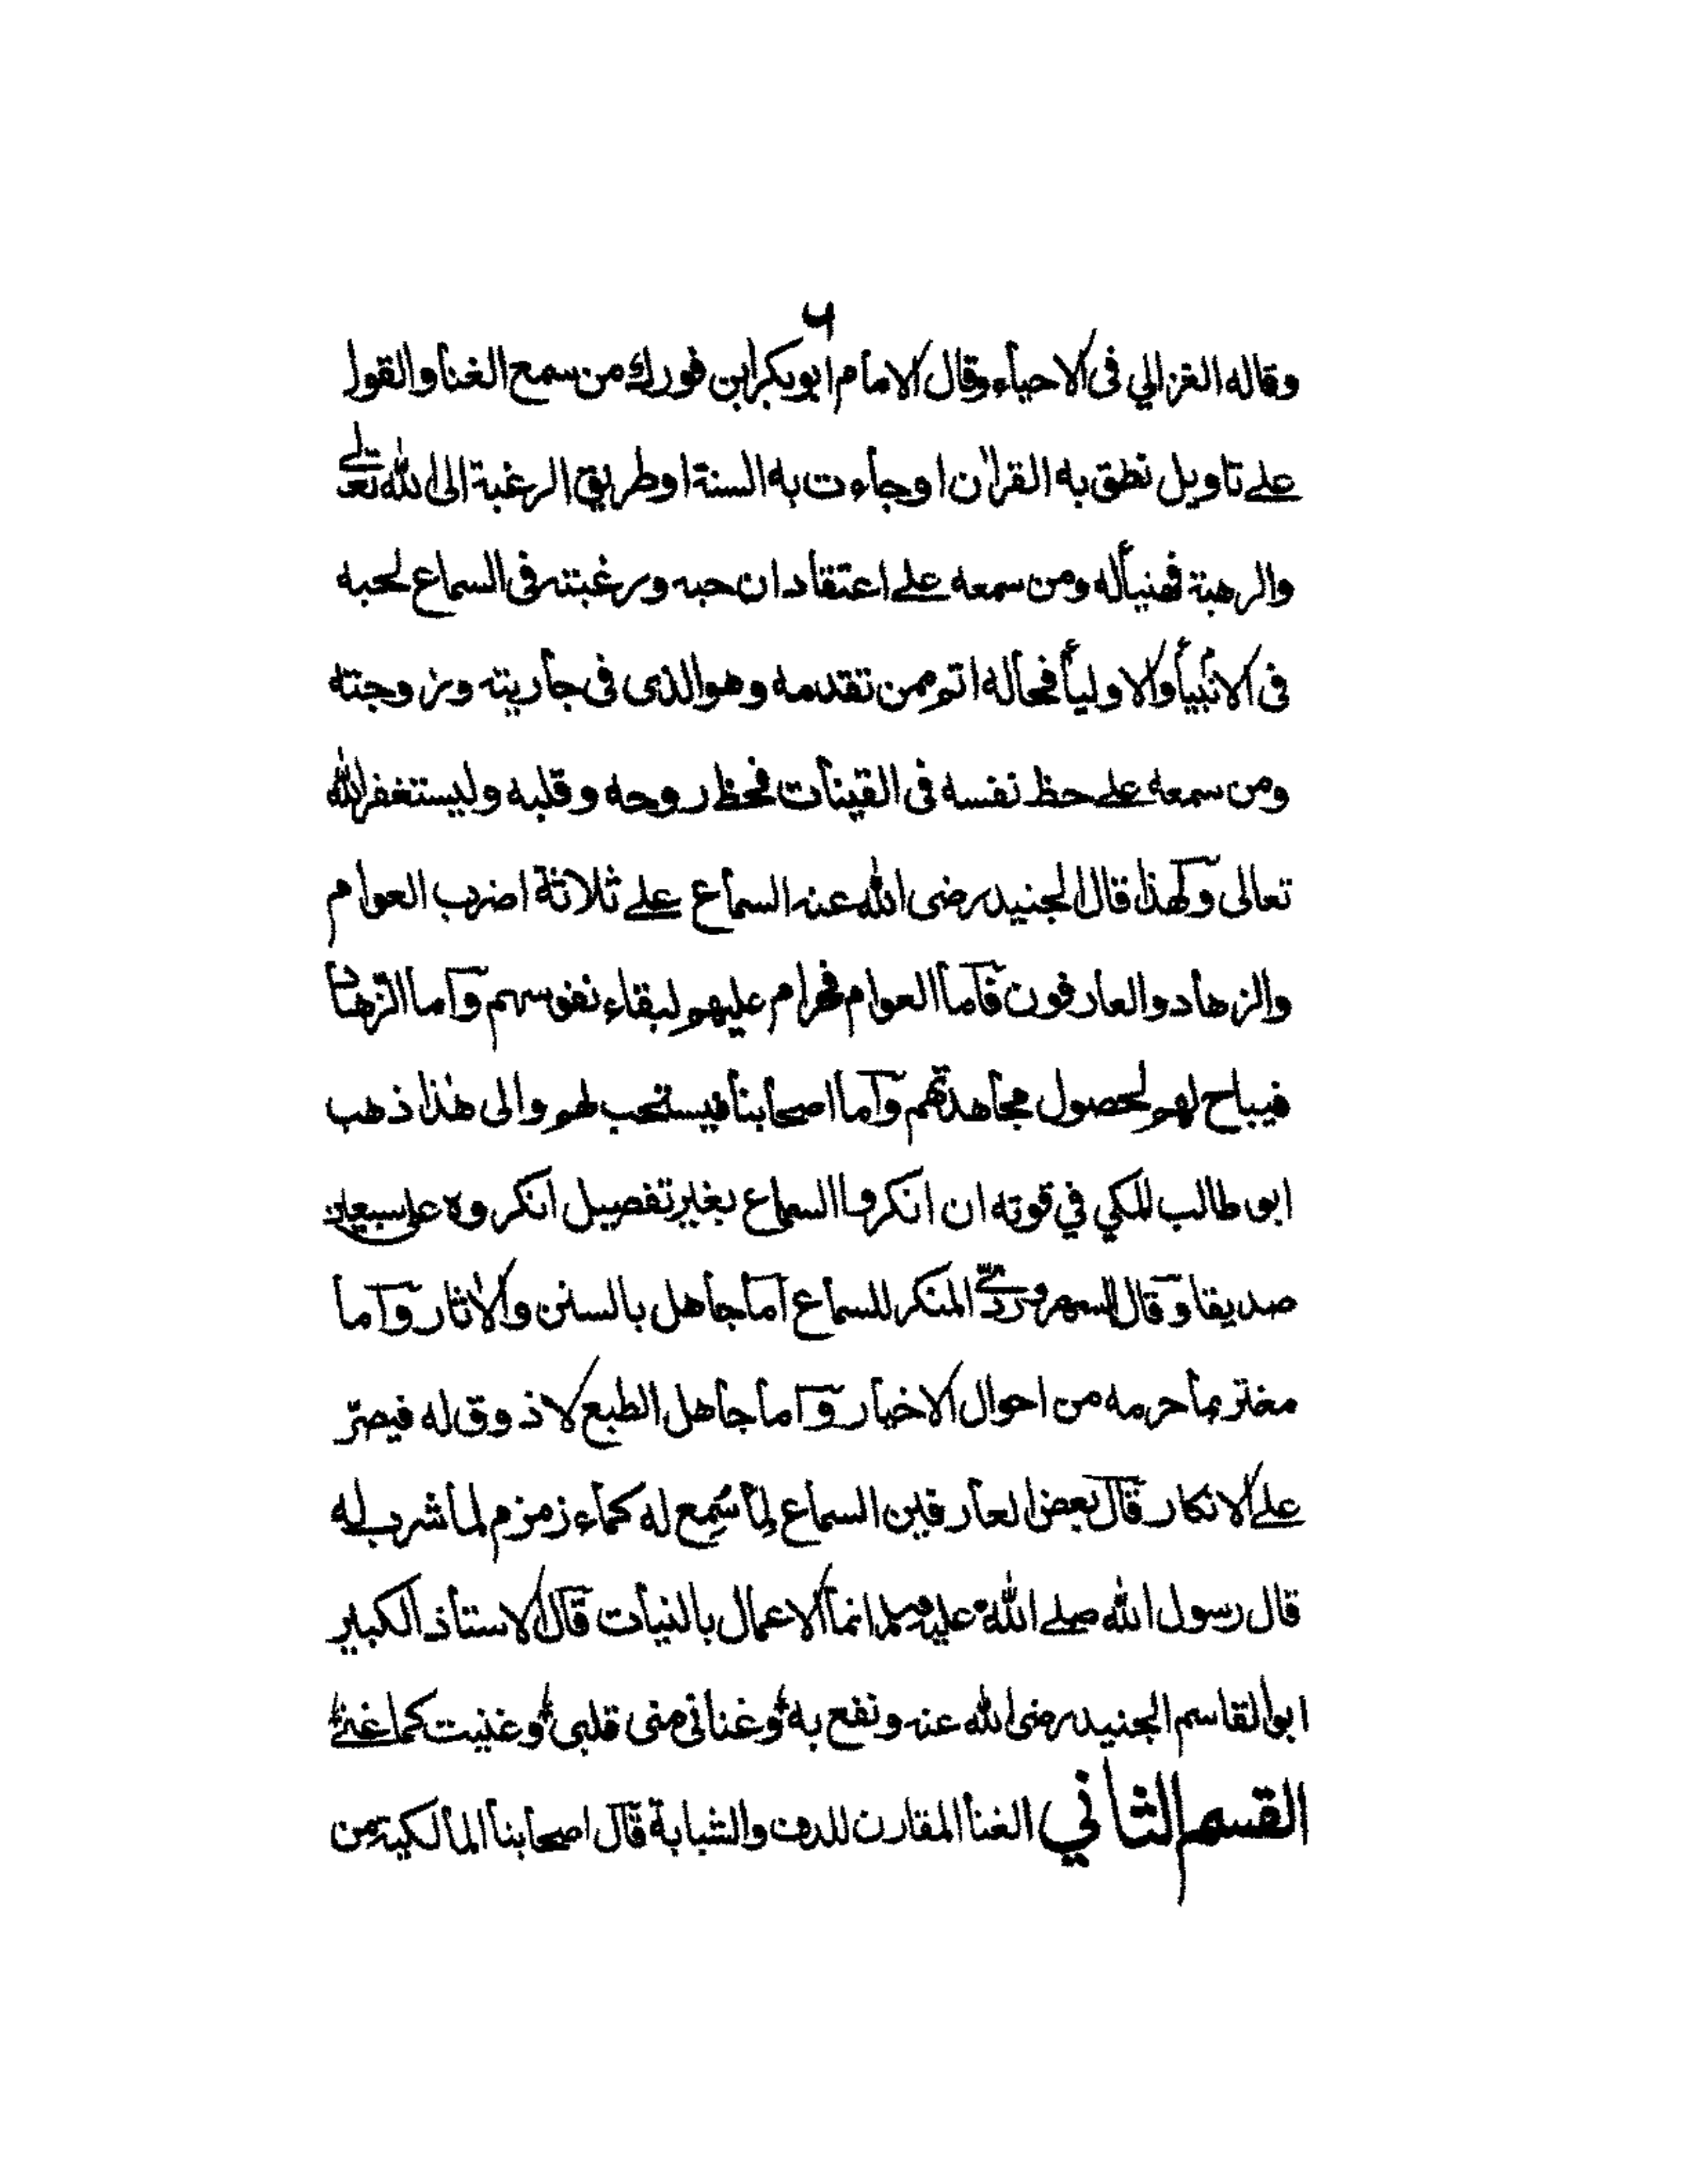 ٦
وقاله الغزالي فى الاحياء وقال الامام ابو بكر ابن فورك من سمع الغنا والقول
على تاويل نطق به القران اوجاءت به السنة اوطريق الرغبة الى الله تعالى
والرهبة فهنيأله ومن سمعه على اعتقاد ان حبه ورغبته فى السماع لحبه
فى الانبيأ والاوليأ فحاله اتم ممن تقدمه وهوالذى فى جاريته وزوجته
ومن سمعه على حظ نفسه فى القينات فحظ روحه وقلبه وليستغفر الله
تعالى ولهذا قال الجنيد رضى الله عنه السماع على ثلاثة اضرب العوام
والزهاد والعارفون فاما العوام فحرام عليهم لبقاء نفوسهم واما الزهاد
فيباح لهم لحصول مجاهدتهم واما اصحابنا فيستحب لهم والى هذا ذهب
ابو طالب المكي في قوته ان انكروا السماع بغير تفصيل انكروه على سبعين
صديقا وقال السهروردى المنكر للسماع اما جاهل بالسنن والاثار واما
مغتر بما حرمه من احوال الاخيار واما جاهل الطبع لا ذوق له فيصرّ
على الانكار قال بعض العارفين السماع لِما سُمِع له كماء زمزم لما شرب له
قال رسول الله صلى الله عليه وسلم انما الاعمال بالنيات قال الاستاذ الكبير
ابو القاسم الجنيد رضى الله عنه ونفع به وغنانى منى قلبى وغنيت كما غنى
القسم الثاني الغنا المقارن للدف والشبابة قال اصحابنا المالكية من